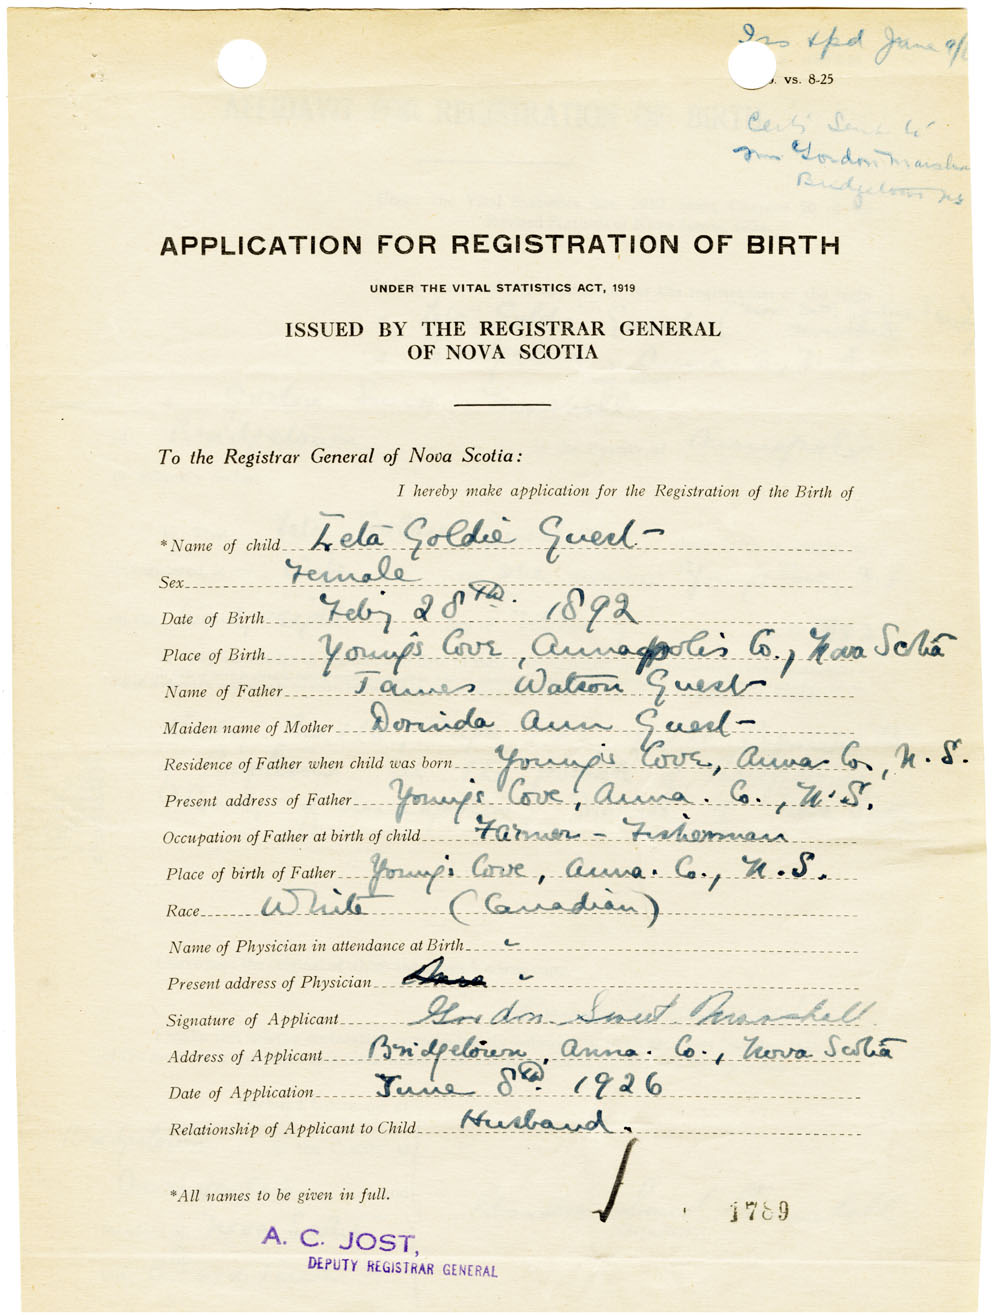 Iss & pd June 9/
. vs. 8-25
Certi Sent to
Mrs Gordon Marshall
Bridgetown NS
APPLICATION FOR REGISTRATION OF BIRTH
UNDER THE VITAL STATISTICS ACT, 1919
ISSUED BY THE REGISTRAR GENERAL
OF NOVA SCOTIA
To the Registrar General of Nova Scotia:
I hereby make application for the Registration of the Birth of
*Name of child Goldie Guest
Sex Female
Date of Birth Feb'y 28th. 1892
Place of Birth Young's Cove, Annapolis Co., Nova Scotia
Name of Father James Watson Guest
Maiden name of Mother Dorinda Ann Guest
Residence of Father when child was born Young's Cove, Anna. Co., N.S.
Present address of Father Young's Cove, Anna. Co., N.S.
Occupation of Father at birth of child Farmer - Fisherman
Place of birth of Father Young's Cove, Anna. Co., N.S.
Race White (Canadian)
Name of Physician in attendance at Birth "
Present address of Physician "
Signature of Applicant Gordon Marshall
Address of Applicant Bridgetown, Anna. Co., Nova Scotia
Date of Application June 8th. 1926
Relationship of Applicant to Child Husband.
*All names to be given in full.
1789
A. C. JOST,
DEPUTY REGISTRAR GENERAL